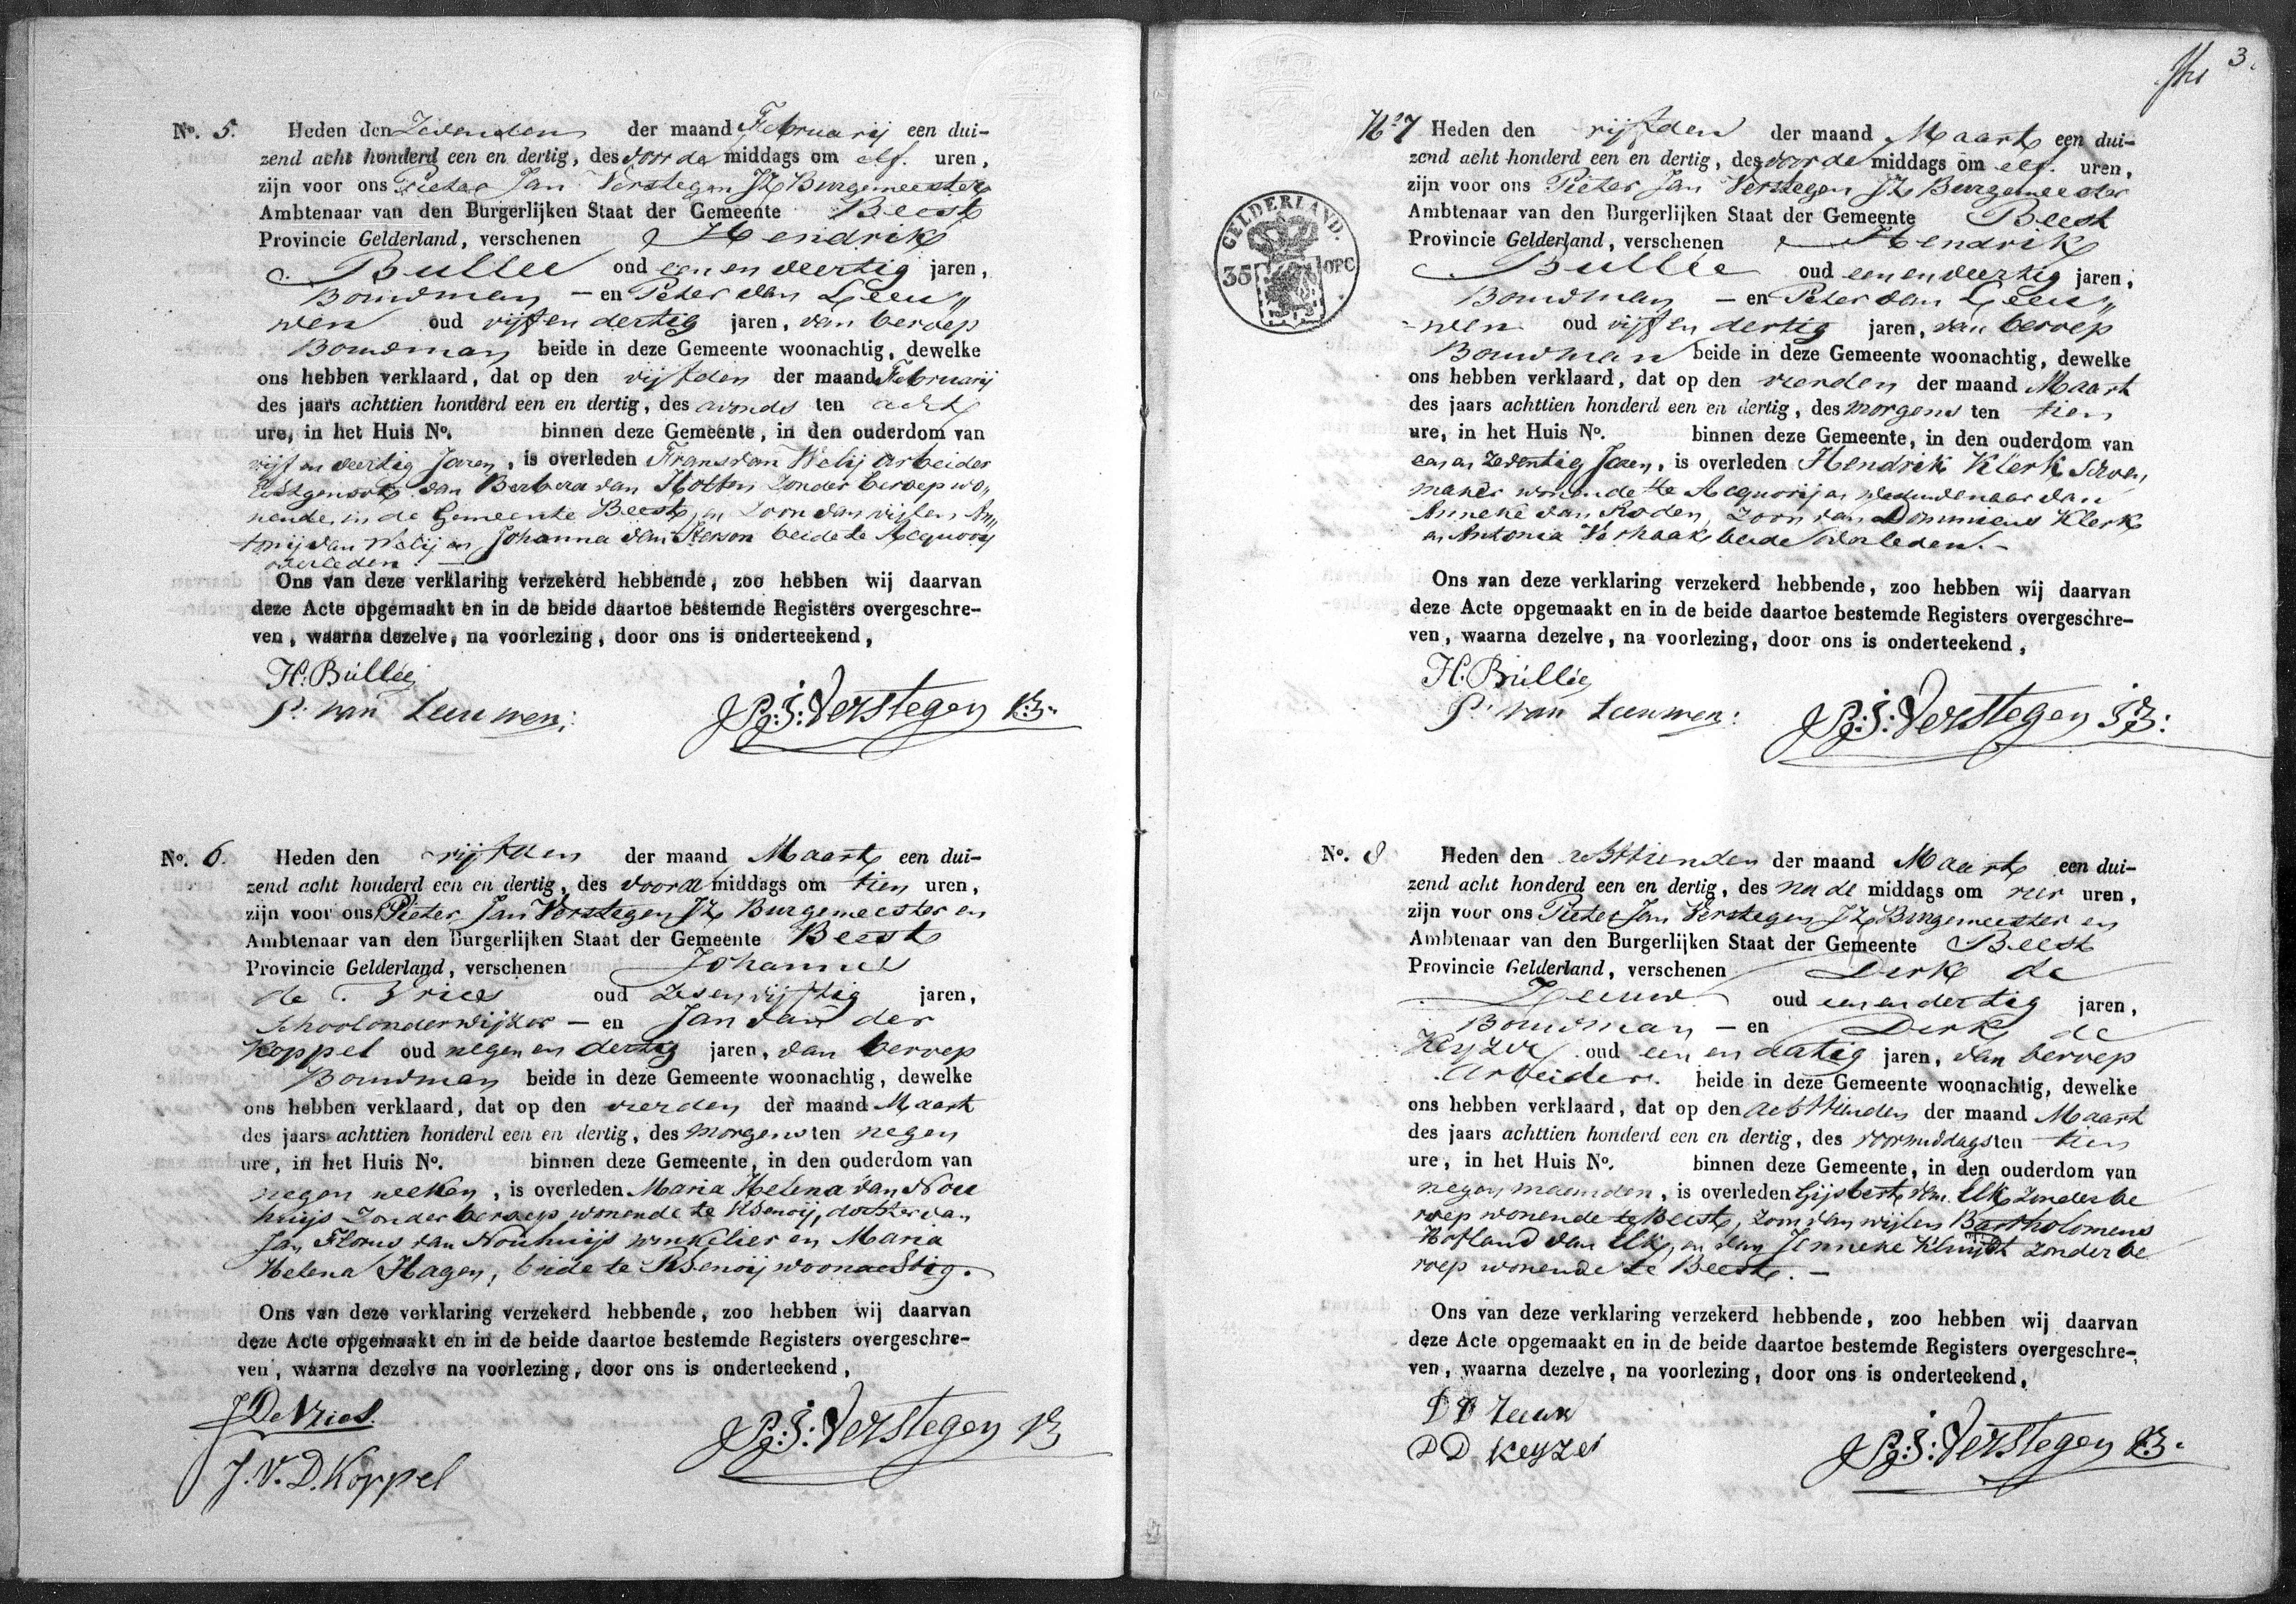 No. 5. Heden den Zevenden der maand Februarij een dui-
zend acht honderd een en dertig, des voor de middags om elf. uren,
zijn voor ons Pieter Jan Verstegen JZ Burgemeester
Ambtenaar van den Burgerlijken Staat der Gemeente Beest
Provincie Gelderland, verschenen Hendrik
Bullee oud een en veertig jaren,
Bouwman – en Peter van Leeu„
wen oud vijf en dertig jaren, van beroep
Bouwman beide in deze Gemeente woonachtig, dewelke
ons hebben verklaard, dat op den vijfden der maand Februarij
des jaars achttien honderd een en dertig, des avonds ten acht
ure, in het Huis No. binnen deze Gemeente, in den ouderdom van
vijf en veertig Jaren, is overleden Frans van Welij Arbeider
Echtgenoote van Berbera van Hotten Zonder beroep wo„
nende in de Gemeente Beest, en Zoon van wijlen An„
tonij van Welij en Johanna van Kerson beide te Acquooy
overleden. –
Ons van deze verklaring verzekerd hebbende, zoo hebben wij daarvan
deze Acte opgemaakt en in de beide daartoe bestemde Registers overgeschre-
ven, waarna dezelve, na voorlezing, door ons is onderteekend,
H: Bullee
P: van Leeuwen:
P:J:Verstegen JZ:
No. 6. Heden den vijfden der maand Maart een dui-
zend acht honderd een en dertig, des voor de middags om tien uren,
zijn voor ons Pieter Jan Verstegen JZ Burgemeester en
Ambtenaar van den Burgerlijken Staat der Gemeente Beest
Provincie Gelderland, verschenen Johannes
de Vries oud zes en vijftig jaren,
Schoolonderwijzer – en Jan van der
Koppel oud negen en dertig jaren, van beroep
Bouwman beide in deze Gemeente woonachtig, dewelke
ons hebben verklaard, dat op den vierden der maand Maart
des jaars achttien honderd een en dertig, des morgens ten negen
ure, in het Huis No. binnen deze Gemeente, in den ouderdom van
negen weken, is overleden Maria Helena van Nou
huijs Zonder beroep wonende te Rhenoij, dochter van
Jan Florus van Nouhuijs winkelier en Maria
Helena Hagen, beide te Rhenoij woonachtig.
Ons van deze verklaring verzekerd hebbende, zoo hebben wij daarvan
deze Acte opgemaakt en in de beide daartoe bestemde Registers overgeschre-
ven, waarna dezelve na voorlezing, door ons is onderteekend,
J De Vries.
J. V. D. Koppel
P:J:Verstegen JZ
3.
GELDERLAND.
35 OPC
No 7 Heden den vijfden der maand Maart een dui-
zend acht honderd een en dertig, des voor de middags om elf. uren,
zijn voor ons Pieter Jan Verstegen JZ Burgemeester
Ambtenaar van den Burgerlijken Staat der Gemeente Beest
Provincie Gelderland, verschenen Hendrik
Bullee oud een en veertig jaren,
Bouwman – en Peter van Leeu„
wen oud vijf en dertig jaren, van beroep
Bouwman beide in deze Gemeente woonachtig, dewelke
ons hebben verklaard, dat op den vierden der maand Maart
des jaars achttien honderd een en dertig, des morgens ten tien
ure, in het Huis No. binnen deze Gemeente, in den ouderdom van
een en zeventig Jaren, is overleden Hendrik Klerk Schoen
maker wonende te Acquoij en weduwenaar van
Anneke van Roden, Zoon van Dominicus Klerk
en Antonia Verhaak beide overleden. –
Ons van deze verklaring verzekerd hebbende, zoo hebben wij daarvan
deze Acte opgemaakt en in de beide daartoe bestemde Registers overgeschre-
ven, waarna dezelve, na voorlezing, door ons is onderteekend,
H: Bullee
P: van Leeuwen:
P:J:Verstegen JZ:
No. 8 Heden den achttienden der maand Maart een dui-
zend acht honderd een en dertig, des na de middags om vier uren,
zijn voor ons Pieter Jan Verstegen JZ Burgemeester en
Ambtenaar van den Burgerlijken Staat der Gemeente Beest
Provincie Gelderland, verschenen Dirk de
Zeeuw oud een en dertig jaren,
Bouwman – en Dirk de
Keyzer oud een en dertig jaren, van beroep
Arbeider. beide in deze Gemeente woonachtig, dewelke
ons hebben verklaard, dat op den achttienden der maand Maart
des jaars achttien honderd een en dertig, des voormiddags ten tien
ure, in het Huis No. binnen deze Gemeente, in den ouderdom van
negen maanden, is overleden Gijsbert van Elk zonder be
roep wonende te Beest, zoon van wijlen Bartholomeus
Hofland van Elk, en van Jenneke Kluijt zonder be
roep wonende te Beest. –
Ons van deze verklaring verzekerd hebbende, zoo hebben wij daarvan
deze Acte opgemaakt en in de beide daartoe bestemde Registers overgeschre-
ven, waarna dezelve, na voorlezing, door ons is onderteekend,
D D Zeeuw
D D Keyzer
P:J:Verstegen JZ.